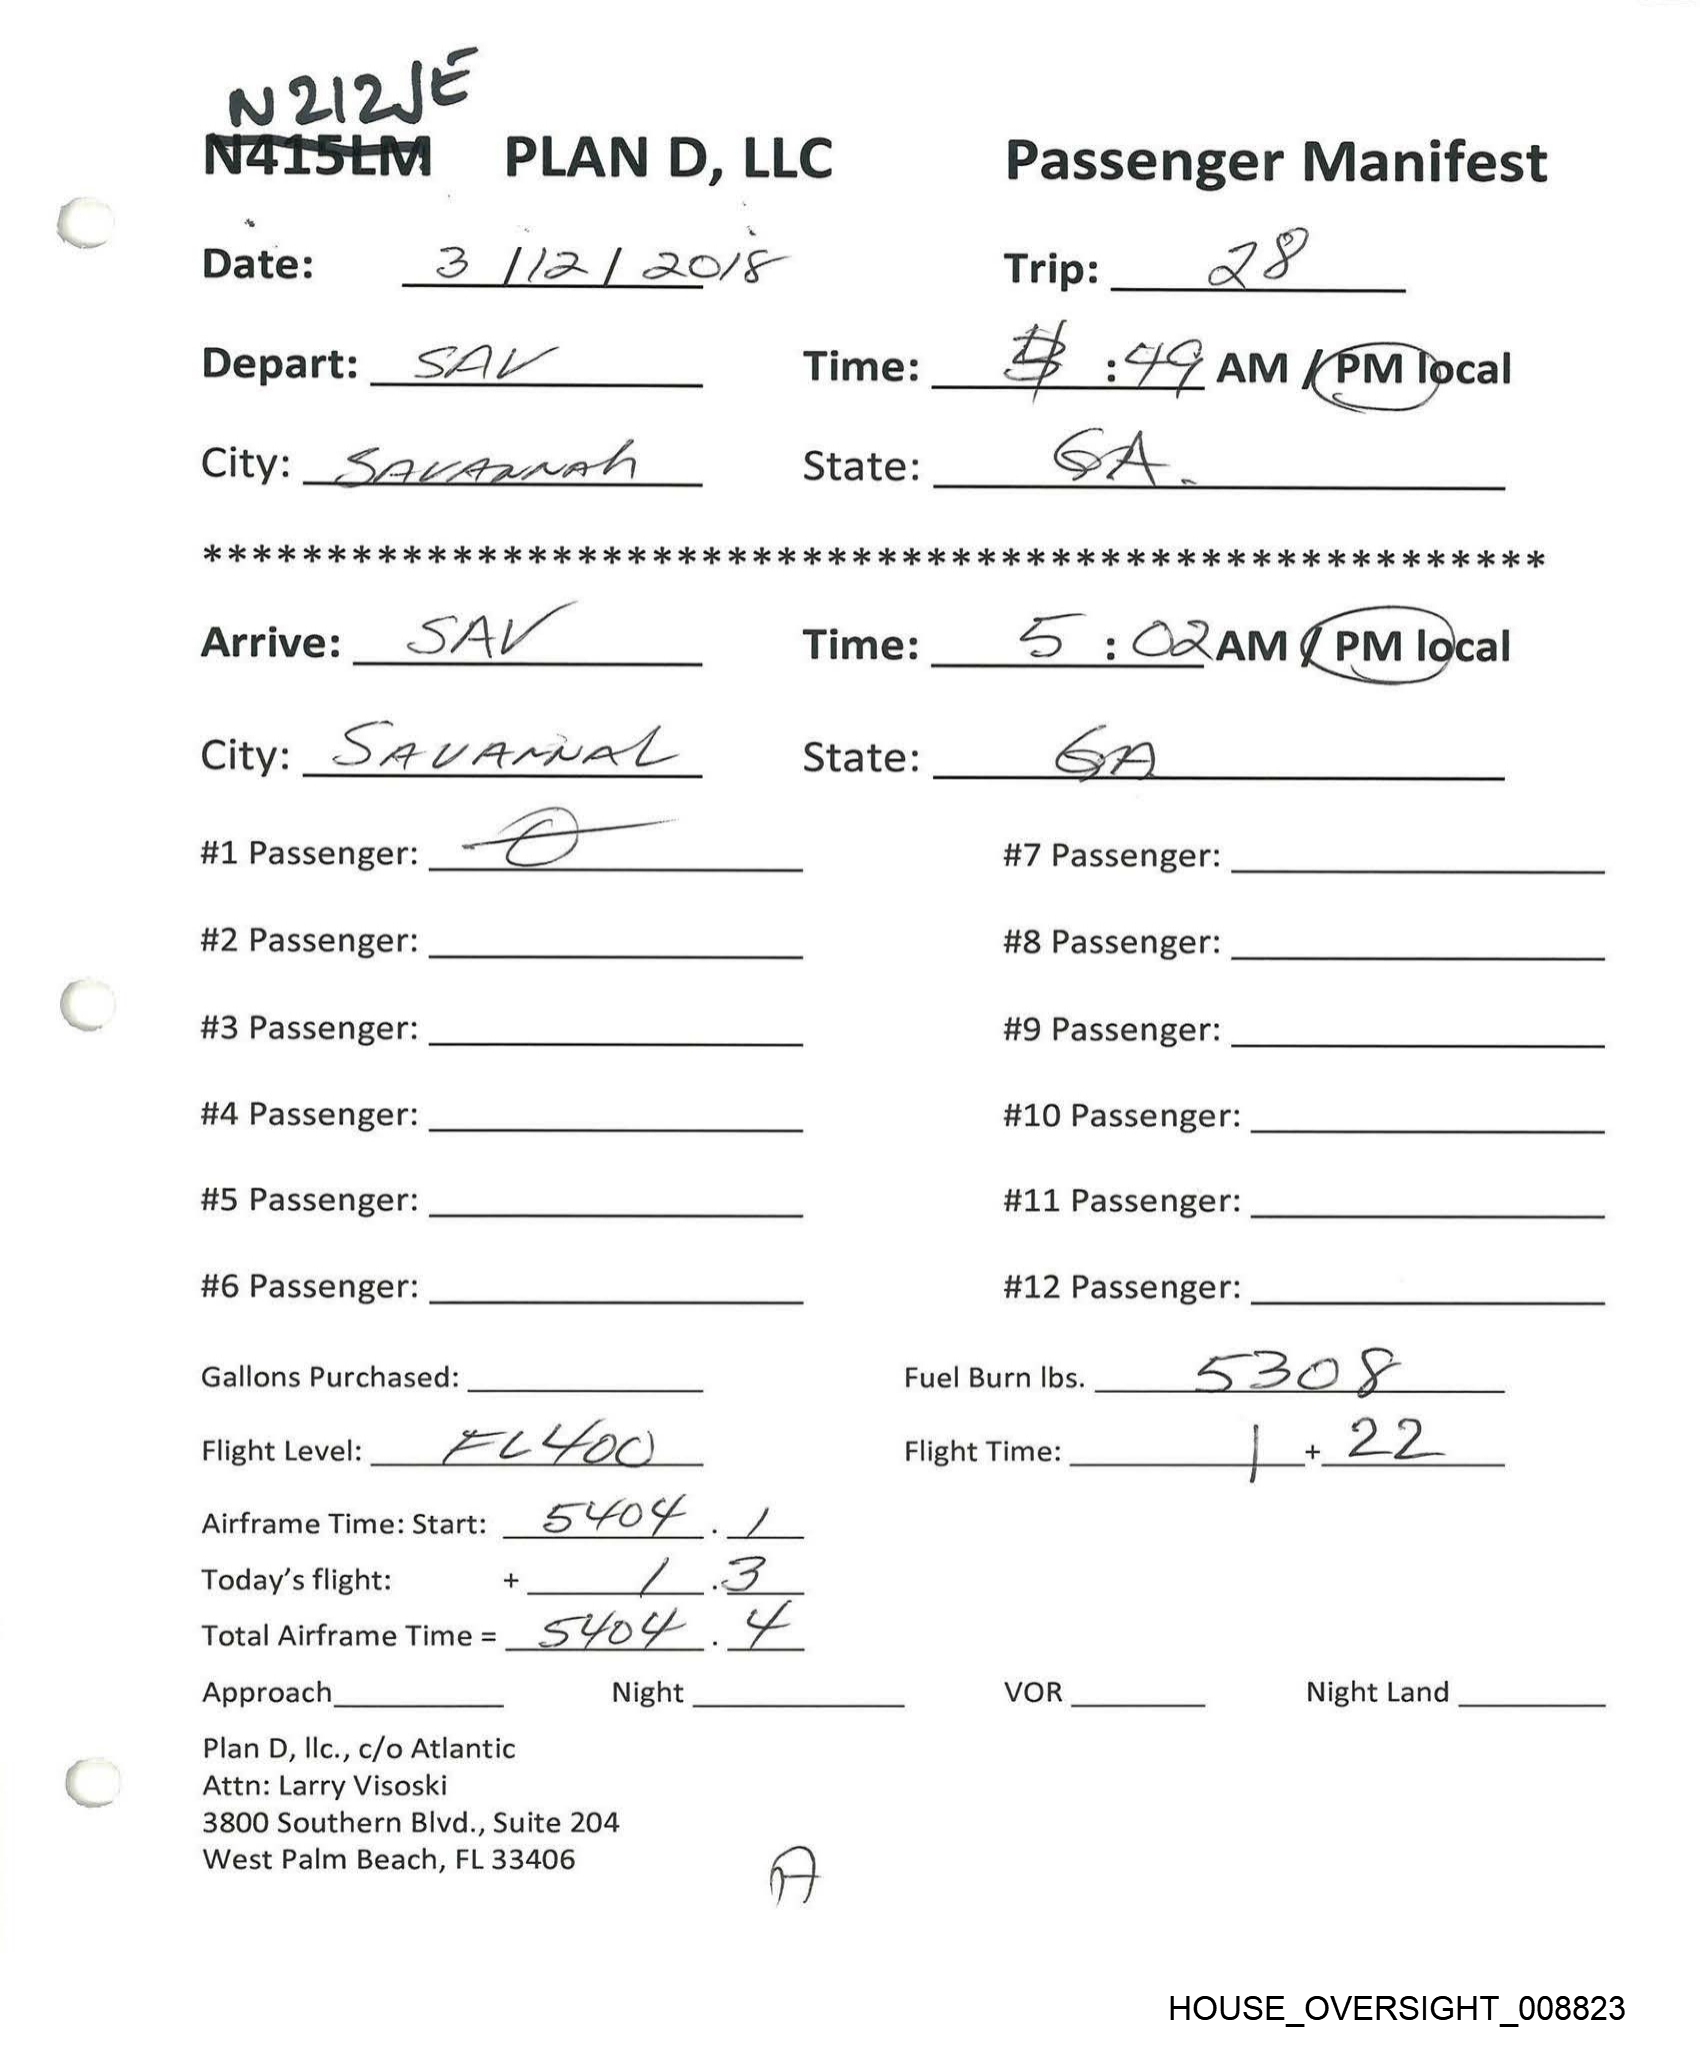 N212JE
N415LM PLAN D, LLC Passenger Manifest
Date: 3 / 12 / 2018 Trip: 28
Depart: SAV Time: :49 AM / PM local
City: SAVANNAh State: GA.
******************************************************
Arrive: SAV Time: 5 : 02 AM / PM local
City: SAVANNAh State: GA
#1 Passenger: 0 #7 Passenger:
#2 Passenger: #8 Passenger:
#3 Passenger: #9 Passenger:
#4 Passenger: #10 Passenger:
#5 Passenger: #11 Passenger:
#6 Passenger: #12 Passenger:
Gallons Purchased: Fuel Burn lbs. 5308
Flight Level: FL400 Flight Time: 1 + 22
Airframe Time: Start: 5404 . 1
Today's flight: + 1 . 3
Total Airframe Time = 5404 . 4
Approach Night VOR Night Land
Plan D, llc., c/o Atlantic
Attn: Larry Visoski
3800 Southern Blvd., Suite 204
West Palm Beach, FL 33406
A
HOUSE_OVERSIGHT_008823